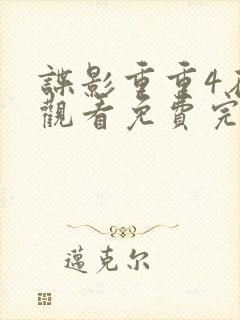 諜影重重4
觀看免費完
邁克尔